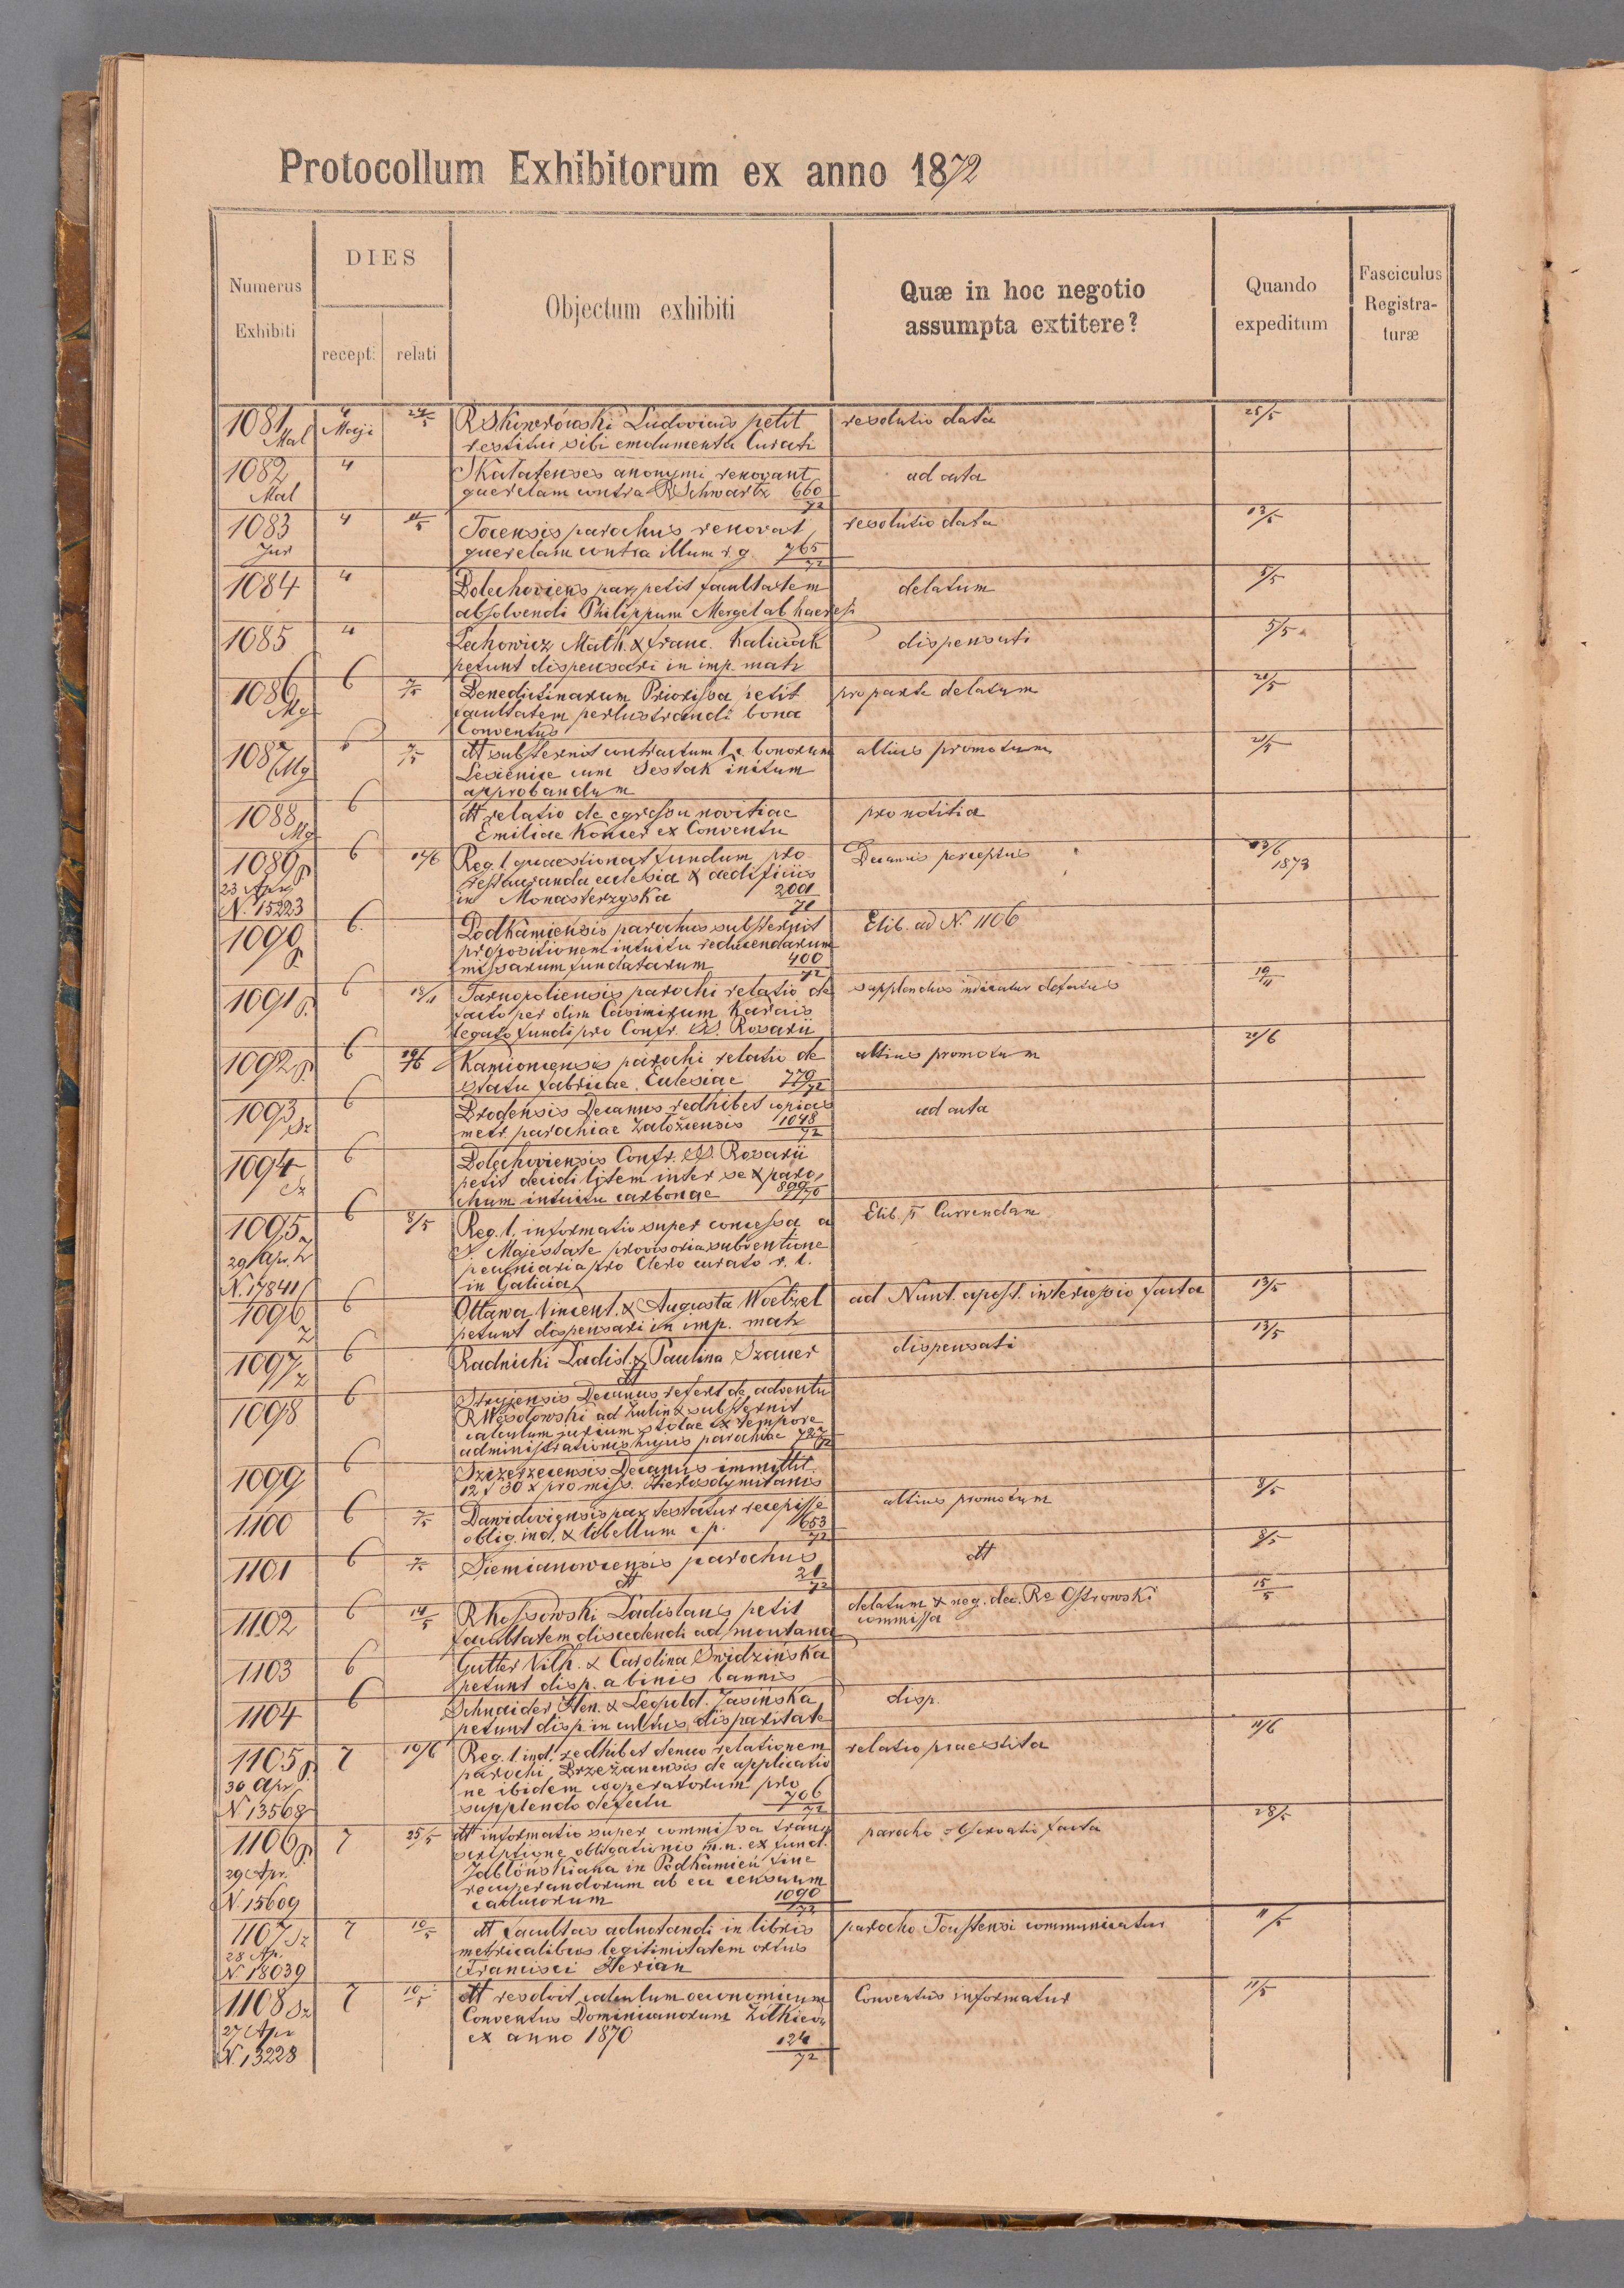 Protocollum Exhibitorum ex anno 1872
Numerus Exhibiti
DIES
recept:
relati
Objectum exhibiti
Quæ in hoc negotio assumpta extitere?
Quando expeditum
Fasciculus Registra-turæ
1081 4 24/5 R Skwerówski Ludovicus petit resolutio data 25/5
Mal Maji restitui sibi emolumenta Curati
1082 4 Skałatenses anonymi renovant ad acta
Mal querelam contra R Schwartz 660/72
1083 4 11/5 Tocensis parochus renovat resolutio data 13/5
Jur querelam contra illum r. g. 765/72
1084 4 Dolechoviens par. petit facultatem delatum 5/5
absolvendi Philippum Mergel ab haeresi
1085 4 Lechowicz Math. & Franc. Kaliciak dispensati 5/5
petunt dispensari in imp. matr
1086 6 7/5 Benedictinarum Priorissa petit pro parte delatum 20/5
Mg facultatem perlustrandi bona
Conventus
1087 6 7/5 dtt substernit contractum l. c. bonorum altius promotum 20/5
Mg Lesienice cum Sestak initum
approbandum
1088 6 dtt relatio de egressu novitiae pro notitia
Mg Emiliae Koncer ex Conventu
1089 6 14/6 Reg. l. quaestionat fundum pro Decanus perceptus 13/6
23 Apr restauranda ecclesia & aedificiis 1873
N. 15223 in Monasterzyska 2001/71
1090 6. Podkamiensis parochus substernit Elib. ad N. 1106
propositionem intuitu reducendarum
missarum fundatarum 400/72
1091 6 18/11 Tarnopoliensis parochi relatio de supplendus indicatur defectus 19/11
facto per olim Casimirum Karais
legato fundi pro Confr. SS. Rosarii
1092 6 19/6 Kamioncensis parochi relatio de altius promotum 20/6
statu fabricae Ecclesiae 779/72
1093 6 Brodensis Decanus redhibet copias ad acta
Sz metr. parochiae Założcensis 1048/72
1094 6 Dolechoviensis Confr. SS. Rosarii
Sz petit decidi litem inter se & paro
chum intuitu carbonae 899/70
1095 6 8/5 Reg. l. informatio super concessa a Elib. Currendam
29 Apr. S. Majestate provisoria subventione
N. 17841 pecuniaria pro Clero curato r. l.
in Galicia
1096 6 Ottawa Vincent. & Augusta Woetzel ad Nunt. apost. intercessio facta 13/5
Z petunt dispensari in imp. matr
1097 6 Radnicki Ladisl. & Paulina Szauer dispensati 13/5
Z dtt
1098 6 Stryjensis Decanus refert de adventu
R Wesołowski ad Żulin & substernit
calculum jurium stolae ex tempore
administrationis hujus parochiae 787/72
1099 6 Szczerzecensis Decanus immittit
12 f 30 x pro miss. Hierosolymitanis
1100 6 7/5 Dawidoviensis par. testatur recepisse altius promotum 8/5
oblig. ind. & libellum c. p. 653/72
1101 6 7/5 Siemianowcensis parochus dtt 8/5
dtt 21/72
1102 6 14/5 R Kossowski Ladislaus petit delatum & neg. dec. R. Ostrowski 15/5
facultatem discedendi ad montana commissa
1103 6 Gutter Vilh. & Carolina Swidzińska
petunt disp. a binis bannis
1104 6 Schnaider Hen. & Leopold. Jasińska disp.
petunt disp in cultus disparitate
1105 7 10/6 Reg. l. ind. redhibet denuo relationem relatio praestita 11/6
30 Apr parochi Brzeżanensis de applicatio
N 13568 ne ibidem cooperatorum pro
supplendo defectu 706/72
1106 7 25/5 dtt informatio super commissa trans parocho observatio facta 28/5
29 Apr. scriptione obligationis m. n. ex fund.
N. 15609 Jabłónskiana in Podkamień fine
recuperandorum ab ea censuum
caducorum 1090/72
1107 Sz 7 10/5 dtt facultas adnotandi in libris parocho Toustensi communicatur 11/5
28 Ap. metricalibus legitimitatem ortus
N. 18039 Francisci Herian
1108 Sz 7 10/5 dtt resolvit calculum oeconomicum Conventus informatur 11/5
27 Apr Conventus Dominicanorum Żółkiev
N. 13228 ex anno 1870 124/72